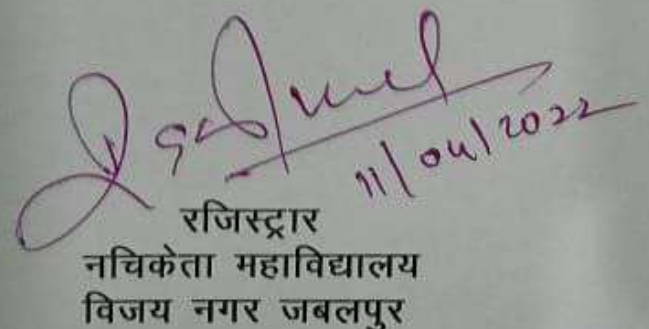 11/04/2022
रजिस्ट्रार
नचिकेता महाविद्यालय
विजय नगर जबलपुर